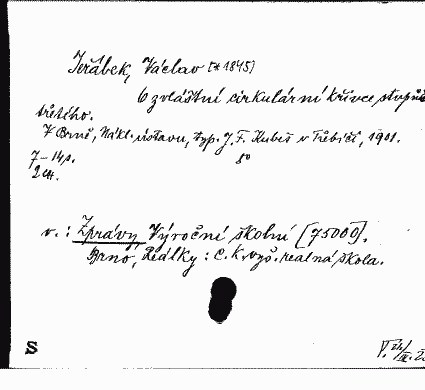 Jeřábek, Václav (* 1845)
O zvláštní cirkulární křivce stupně
třetího.
V Brně, Nákl. ústavu, typ. J. F. Kubeš v Třebíči, 1901.
7-14 s. 8°
v.: Zprávy, Výroční školní [75000].
Brno, Reálky: C. K. vyš. reálná škola.
S